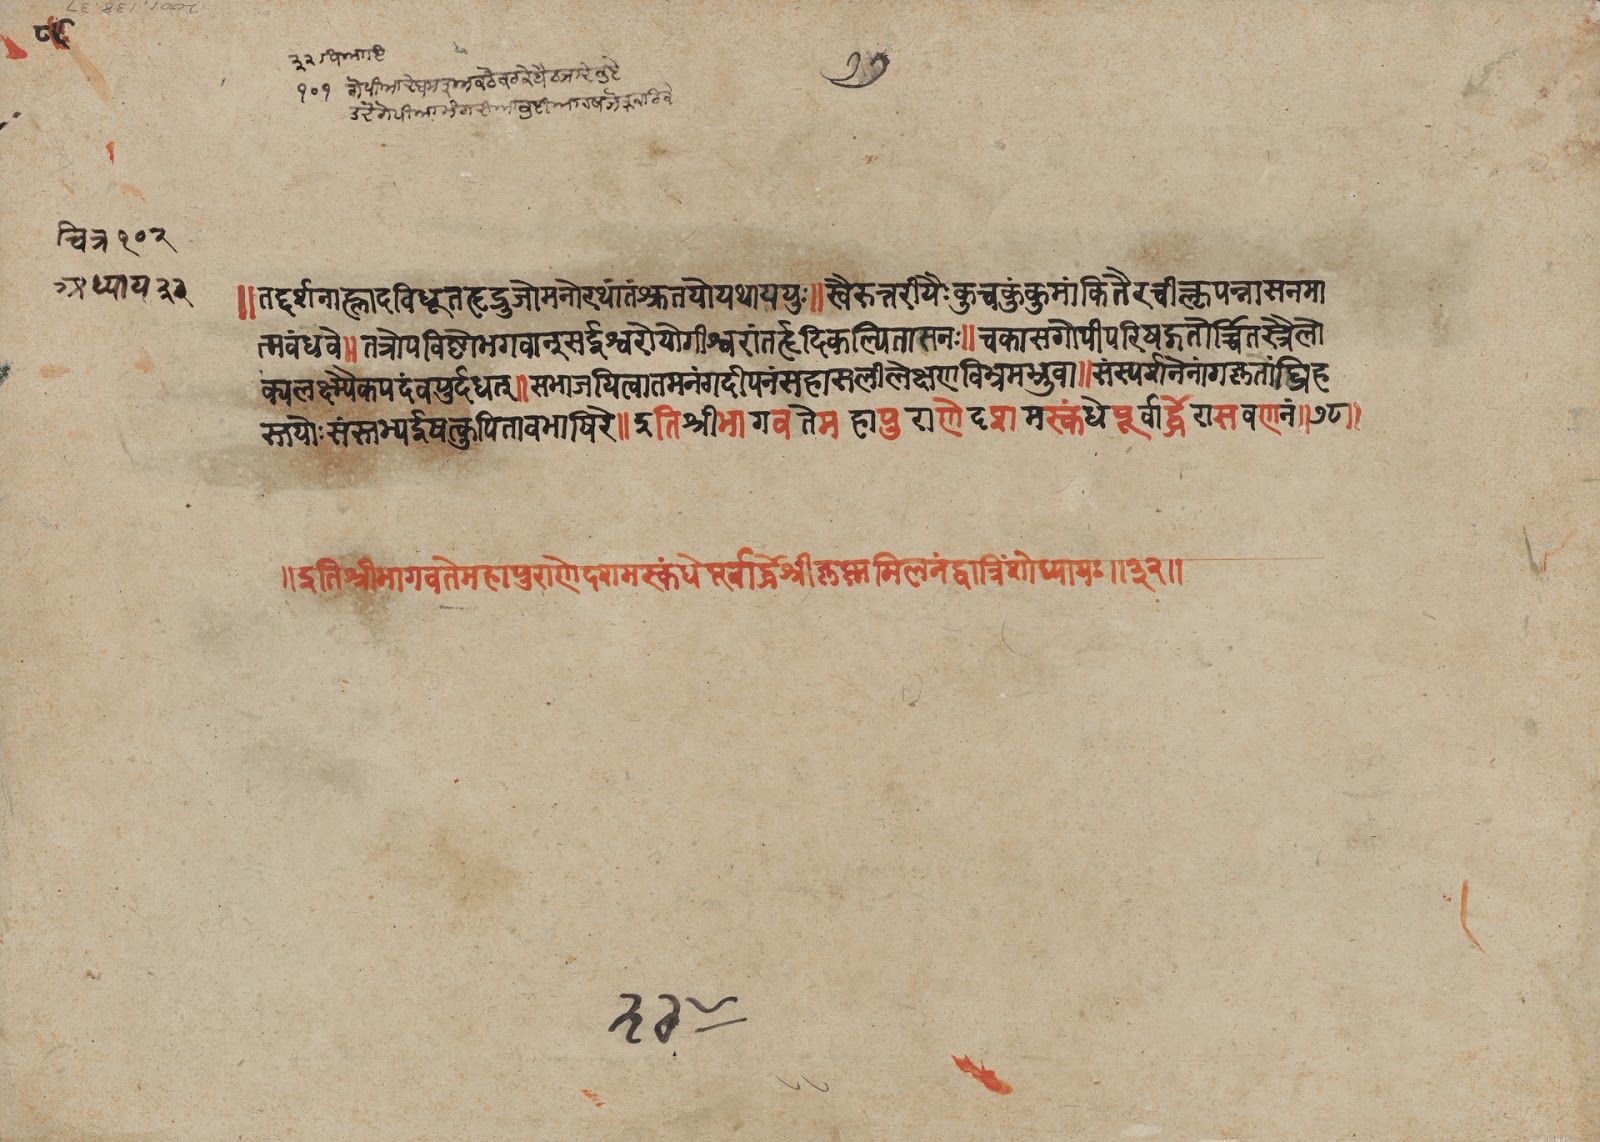 2001.138.37
१०१
७७
चित्र १०२
अध्याय ३२
॥तद्दर्शनाह्लादविधूतहृद्रुजोमनोरथांतंश्रुतयोयथाययुः॥स्वैरुत्तरीयैःकुचकुंकुमांकितैरचीकॢपन्नासनमा
त्मबंधवे॥तत्रोपविष्टोभगवान्सईश्वरोयोगीश्वरांतर्हृदिकल्पितासनः॥चकासगोपीपरिषद्गतोर्च्चितस्त्रैलो
क्यलक्ष्म्यैकपदंवपुर्दधत्॥सभाजयित्वातमनंगदीपनंसहासलीलेक्षणविभ्रमभ्रुवा॥संस्पर्शनेनांगकृतांघ्रिह
स्तयोःसंस्तभ्यईषत्कुपिताबभाषिरे॥इतिश्रीभागवतेमहापुराणेदशमस्कंधेपूर्वार्द्धेरासवर्णनं॥७८॥
॥इतिश्रीभागवतेमहापुराणेदशमस्कंधेपूर्वार्द्धेश्रीकृष्णमिलनंद्वात्रिंशोध्यायः॥३२॥